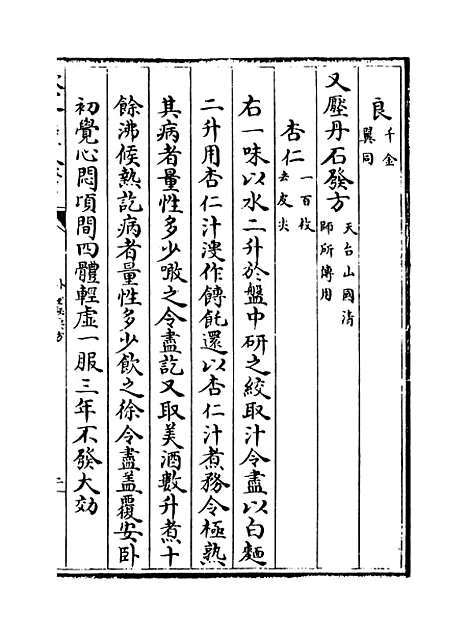 良千金翼同
又壓丹石發方天台山國清師所傳用
杏仁一百枚去皮尖
右一味以水二升於盤中研之絞取汁令盡以白麵
二升用杏仁汁溲作餺飥還以杏仁汁煮務令極熟
其病者量性多少噉之令盡訖又取美酒數升煮十
餘沸候熱訖病者量性多少飲之徐令盡蓋覆安卧
初覺心悶項間四體輕虛一服三年不發大効